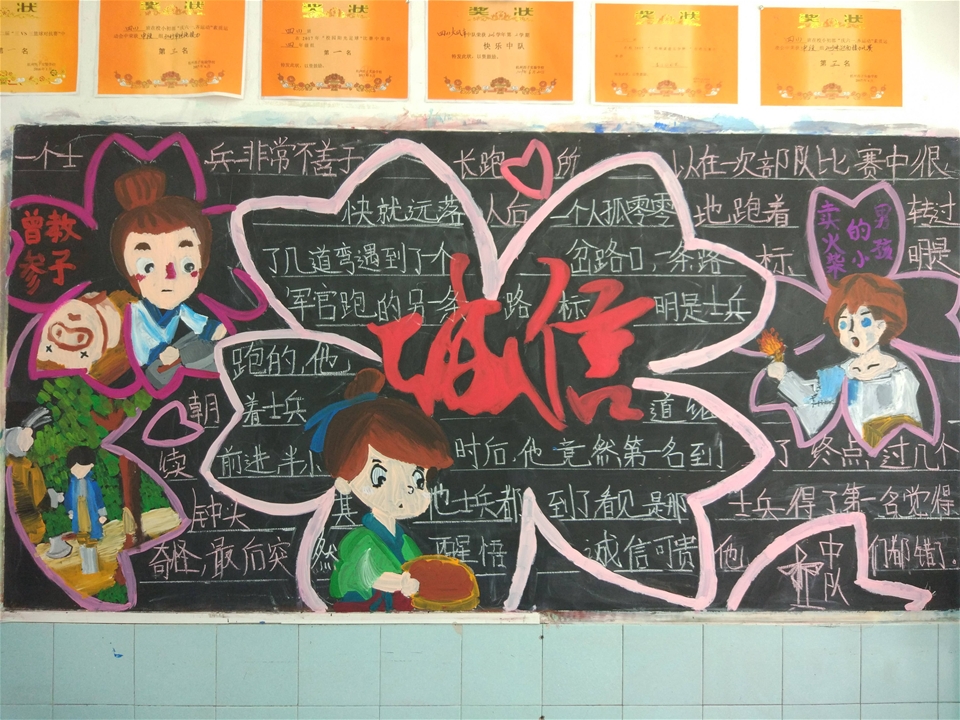 奖状
第一名
奖状
第三名
奖状
第一名
奖状
快乐中队
奖状
奖状
第三名
一个士兵,非常不善于长跑,所以在一次部队比赛中很
快就远落人后,一个人孤零零地跑着 转过
了几道弯遇到了个岔路口,一条路标 明是
军官跑的另一条路标明是士兵
跑的,他
朝着士兵道继
续前进半小时后,他竟然第一名到了终点,过几个
钟头其他士兵都到了看见是那士兵得了第一名觉得
奇怪,最后突然醒悟诚信可贵他们都错了。
诚信
曾教
参子
卖火柴
的小
男孩
中队